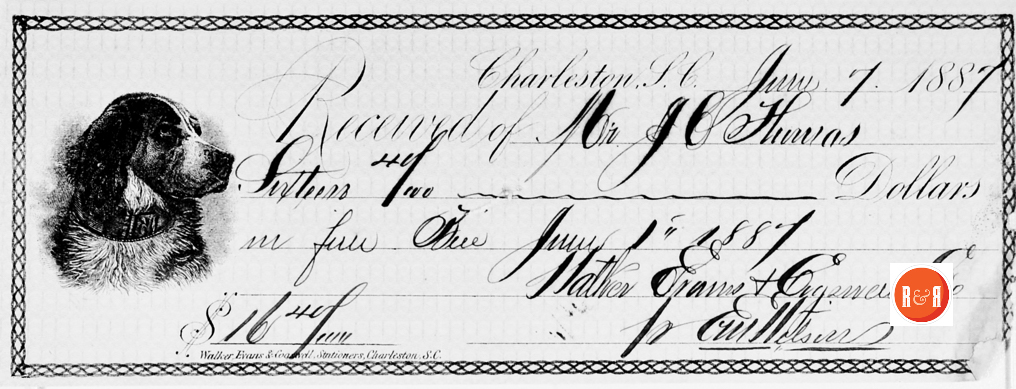 Charleston, S.C. June 7. 1887
Received of Mr J C Thomas
Sixteen 40/100 Dollars
in full Bill June 1" 1887
Walker Evans & Cogswell Co
$ 16 40/100 pr
Walker, Evans & Cogswell, Stationers, Charleston, S.C.
R&R